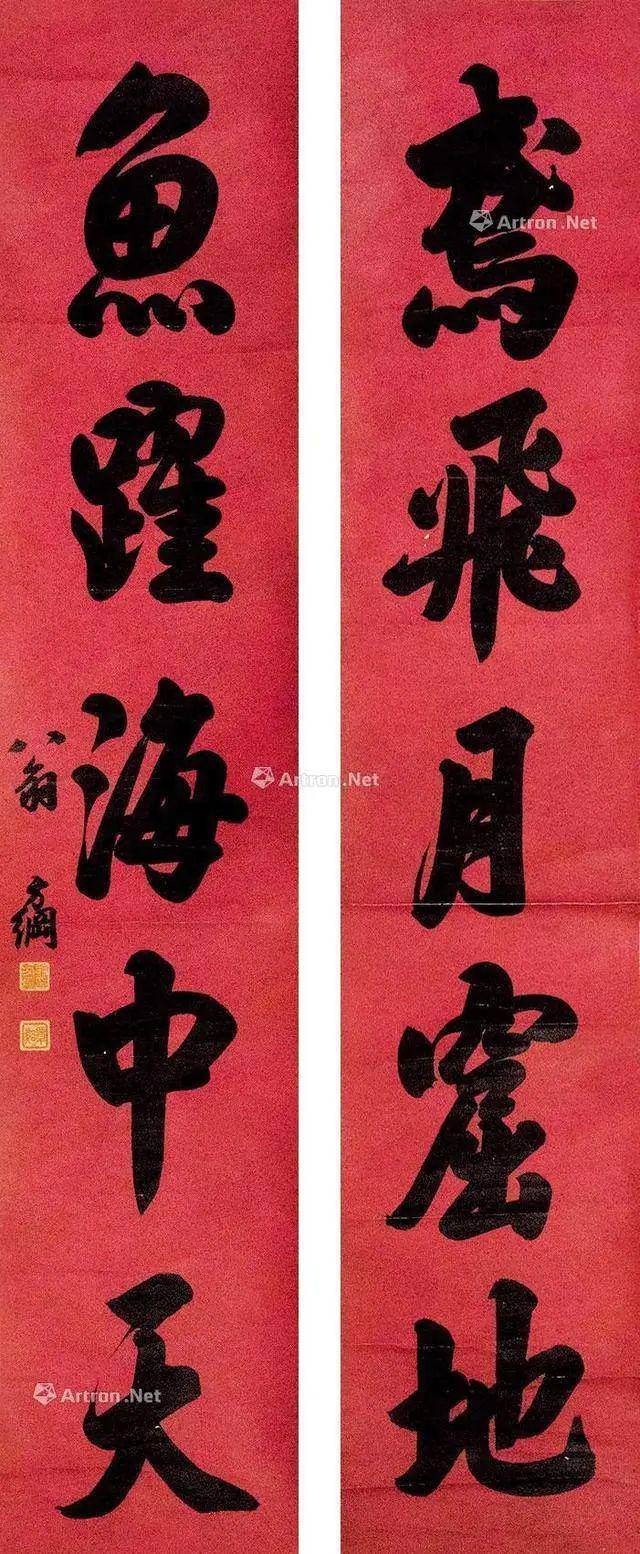 鳶飛月窟地
魚躍海中天
翁方綱
Artron.Net
Artron.Net
Artron.Net